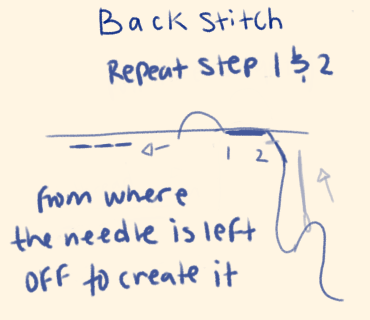 Back stitch
Repeat step 1 & 2
1 2
from where
the needle is left
OFF to create it